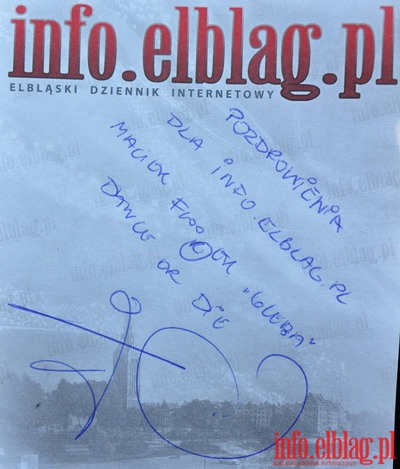 info.elblag.pl
ELBLĄSKI DZIENNIK INTERNETOWY
POZDROWIENIA
DLA INFO.ELBLAG.PL
MACIEK FLOREK „GLEBA"
DANCE OR DIE
info.elblag.pl